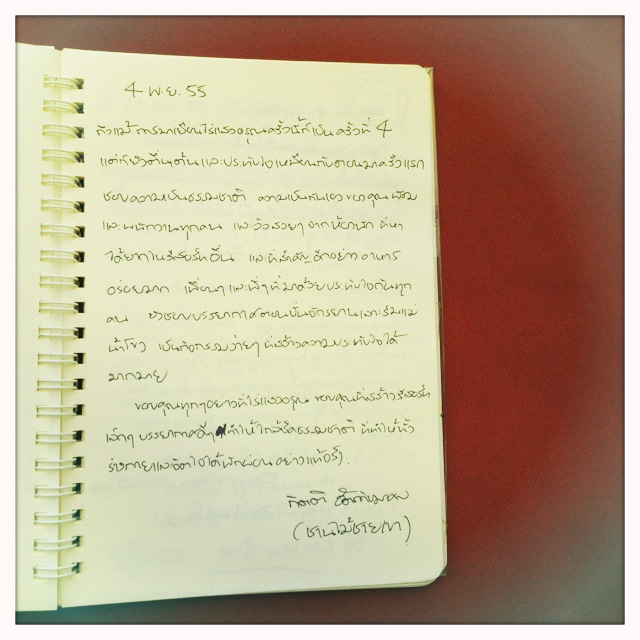 4 พ.ย. 55
ถึงแม้การมาเยือนไร่แสงอรุณครั้งนี้ก็เป็นครั้งที่ 4
แต่ก็ยังตื่นเต้น และประทับใจเหมือนกับตอนมาครั้งแรก
ชอบความเป็นธรรมชาติ ความเป็นกันเองของคุณ
และพนักงานทุกคน และวิวสวยๆ จากห้องพัก ที่หา
ได้ยากในรีสอร์ทอื่น และที่สำคัญอีกอย่าง อาหาร
อร่อยมาก เพื่อนๆ และพี่ๆ ที่มาด้วยประทับใจกันทุก
คน ยังชอบบรรยากาศตอนปั่นจักรยานเลาะริมแม่
น้ำโขง เป็นกิจกรรมง่ายๆ ที่สร้างความประทับใจได้
มากมาย
ขอบคุณทุกๆอย่างที่ไร่แสงอรุณ ขอบคุณที่สร้างรีสอร์ท
เล็กๆ บรรยากาศดีๆ ทำให้ใกล้ชิดธรรมชาติ ที่ทำให้ทั้ง
ร่างกายและจิตใจได้พักผ่อนอย่างแท้จริง.
กิตติ
(ชานไม้ชายเขา)